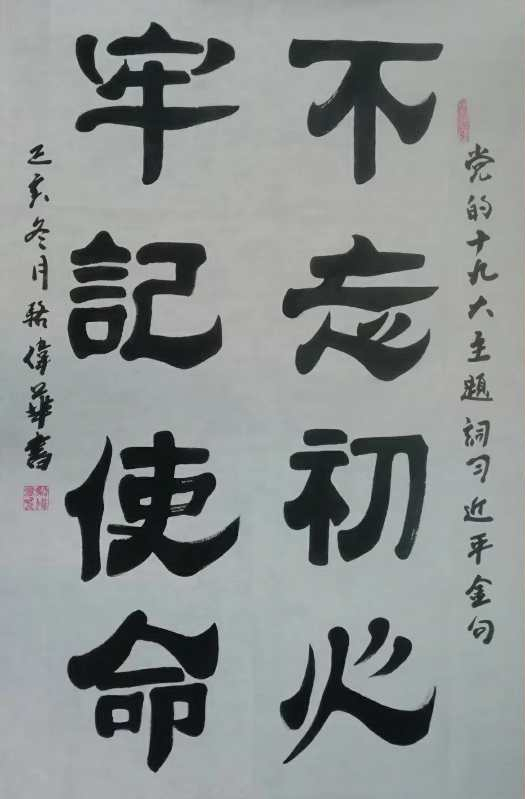 党的十九大主題詞习近平金句
不忘初心
牢記使命
己亥冬月偉華書